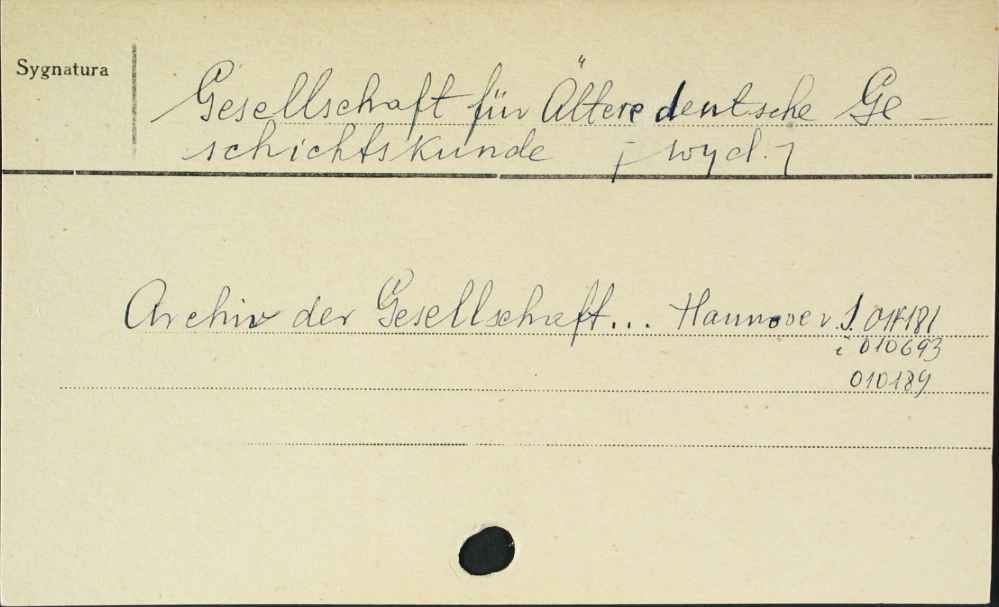 Sygnatura
Gesellschaft für Ältere deutsche Ge-
schichtskunde [wyd.]
Archiv der Gesellschaft... Hannover S.
i 010693
010189